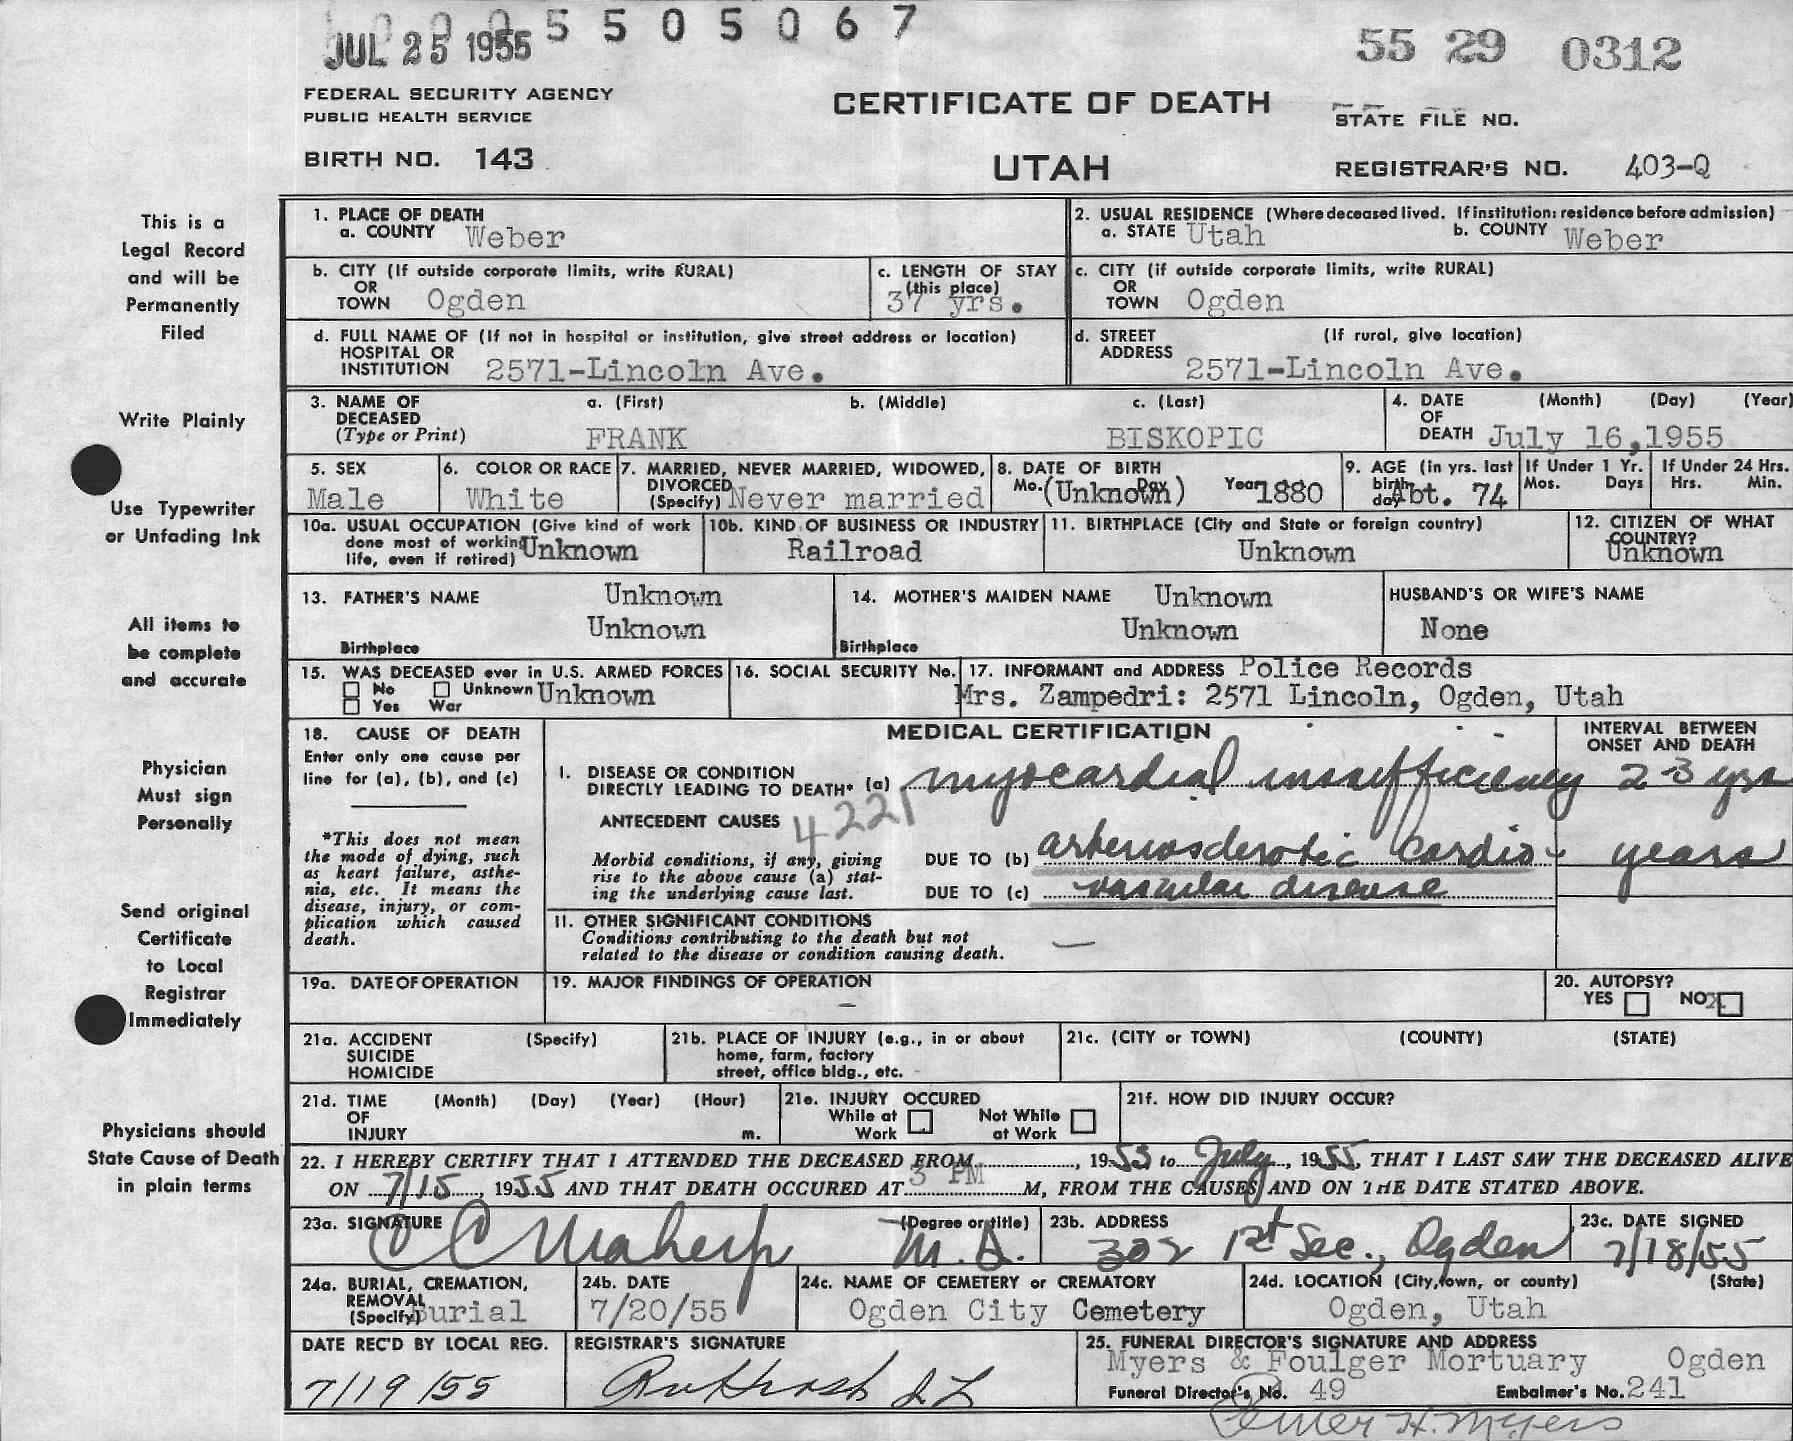 JUL 25 1955 5 5 0 5 0 6 7
55 29 0312
FEDERAL SECURITY AGENCY
PUBLIC HEALTH SERVICE
CERTIFICATE OF DEATH
STATE FILE NO.
BIRTH NO. 143
UTAH
REGISTRAR'S NO. 403-Q
This is a
Legal Record
and will be
Permanently
Filed
Write Plainly
Use Typewriter
or Unfading Ink
All items to
be complete
and accurate
Physician
Must sign
Personally
Send original
Certificate
to Local
Registrar
Immediately
Physicians should
State Cause of Death
in plain terms
1. PLACE OF DEATH
a. COUNTY Weber
2. USUAL RESIDENCE (Where deceased lived. If institution: residence before admission)
a. STATE Utah b. COUNTY Weber
b. CITY (If outside corporate limits, write RURAL)
OR
TOWN Ogden
c. LENGTH OF STAY
(this place)
37 yrs.
c. CITY (if outside corporate limits, write RURAL)
OR
TOWN Ogden
d. FULL NAME OF (If not in hospital or institution, give street address or location)
HOSPITAL OR
INSTITUTION 2571-Lincoln Ave.
d. STREET (If rural, give location)
ADDRESS
2571-Lincoln Ave.
3. NAME OF a. (First) b. (Middle) c. (Last)
DECEASED
(Type or Print) FRANK BISKOPIC
4. DATE (Month) (Day) (Year)
OF
DEATH July 16,1955
5. SEX
Male
6. COLOR OR RACE
White
7. MARRIED, NEVER MARRIED, WIDOWED,
DIVORCED
(Specify) Never married
8. DATE OF BIRTH
Mo. (Unknown) Day Year 1880
9. AGE (in yrs. last
birth-
day) Abt. 74
If Under 1 Yr.
Mos. Days
If Under 24 Hrs.
Hrs. Min.
10a. USUAL OCCUPATION (Give kind of work
done most of working Unknown
life, even if retired)
10b. KIND OF BUSINESS OR INDUSTRY
Railroad
11. BIRTHPLACE (City and State or foreign country)
Unknown
12. CITIZEN OF WHAT
COUNTRY?
Unknown
13. FATHER'S NAME Unknown
Unknown
Birthplace
14. MOTHER'S MAIDEN NAME Unknown
Unknown
Birthplace
HUSBAND'S OR WIFE'S NAME
None
15. WAS DECEASED ever in U.S. ARMED FORCES
No Unknown Unknown
Yes War
16. SOCIAL SECURITY No.
17. INFORMANT and ADDRESS Police Records
Mrs. Zampedri: 2571 Lincoln, Ogden, Utah
18. CAUSE OF DEATH
Enter only one cause per
line for (a), (b), and (c)
*This does not mean
the mode of dying, such
as heart failure, asthe-
nia, etc. It means the
disease, injury, or com-
plication which caused
death.
MEDICAL CERTIFICATION
INTERVAL BETWEEN
ONSET AND DEATH
I. DISEASE OR CONDITION
DIRECTLY LEADING TO DEATH* (a) myocardial insufficiency 2-3 yrs
ANTECEDENT CAUSES 4221
Morbid conditions, if any, giving
rise to the above cause (a) stat-
ing the underlying cause last.
DUE TO (b) arteriosclerotic cardio- years
DUE TO (c) vascular disease
II. OTHER SIGNIFICANT CONDITIONS
Conditions contributing to the death but not
related to the disease or condition causing death. —
19a. DATE OF OPERATION
19. MAJOR FINDINGS OF OPERATION
—
20. AUTOPSY?
YES NO X
21a. ACCIDENT (Specify)
SUICIDE
HOMICIDE
21b. PLACE OF INJURY (e.g., in or about
home, farm, factory
street, office bldg., etc.
21c. (CITY or TOWN) (COUNTY) (STATE)
21d. TIME (Month) (Day) (Year) (Hour)
OF
INJURY m.
21e. INJURY OCCURED
While at Not While
Work at Work
21f. HOW DID INJURY OCCUR?
22. I HEREBY CERTIFY THAT I ATTENDED THE DECEASED FROM, 1953 to July, 1955, THAT I LAST SAW THE DECEASED ALIVE
ON 7/15, 1955 AND THAT DEATH OCCURED AT 3 PM M, FROM THE CAUSES AND ON THE DATE STATED ABOVE.
23a. SIGNATURE (Degree or title)
M.D.
23b. ADDRESS
302 1st Sec., Ogden
23c. DATE SIGNED
7/18/55
24a. BURIAL, CREMATION,
REMOVAL
(Specify) Burial
24b. DATE
7/20/55
24c. NAME OF CEMETERY or CREMATORY
Ogden City Cemetery
24d. LOCATION (City, town, or county) (State)
Ogden, Utah
DATE REC'D BY LOCAL REG.
7/19/55
REGISTRAR'S SIGNATURE
25. FUNERAL DIRECTOR'S SIGNATURE AND ADDRESS
Myers & Foulger Mortuary Ogden
Funeral Director's No. 49 Embalmer's No. 241
Elmer H. Myers